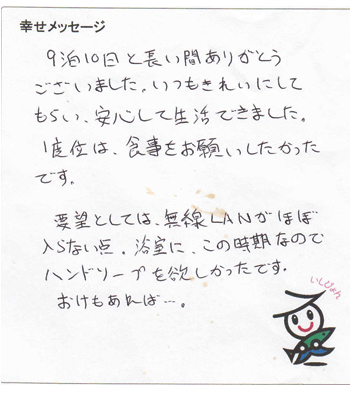 幸せメッセージ
9泊10日と長い間ありがとう
ございました。いつもきれいにして
もらい、安心して生活できました。
1度位は、食事をお願いしたかった
です。
要望としては、無線LANがほぼ
入らない点。浴室に、この時期なので
ハンドソープを欲しかったです。
おけもあれば…。
いしじょん